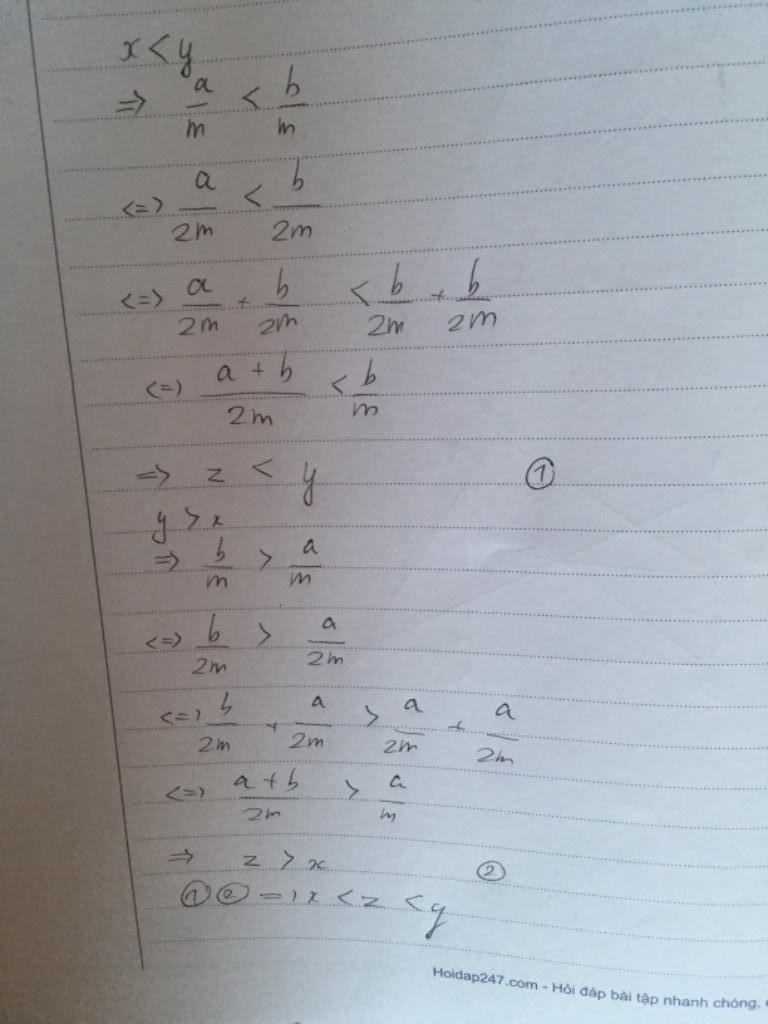 x < y
=> a/m < b/m
<=> a/2m < b/2m
<=> a/2m + b/2m < b/2m + b/2m
<=> a + b/2m < b/m
=> z < y ①
y > x
=> b/m > a/m
<=> b/2m > a/2m
<=> b/2m + a/2m > a/2m + a/2m
<=> a + b/2m > a/m
=> z > x ②
① ② => x < z < y
Hoidap247.com - Hỏi đáp bài tập nhanh chóng,